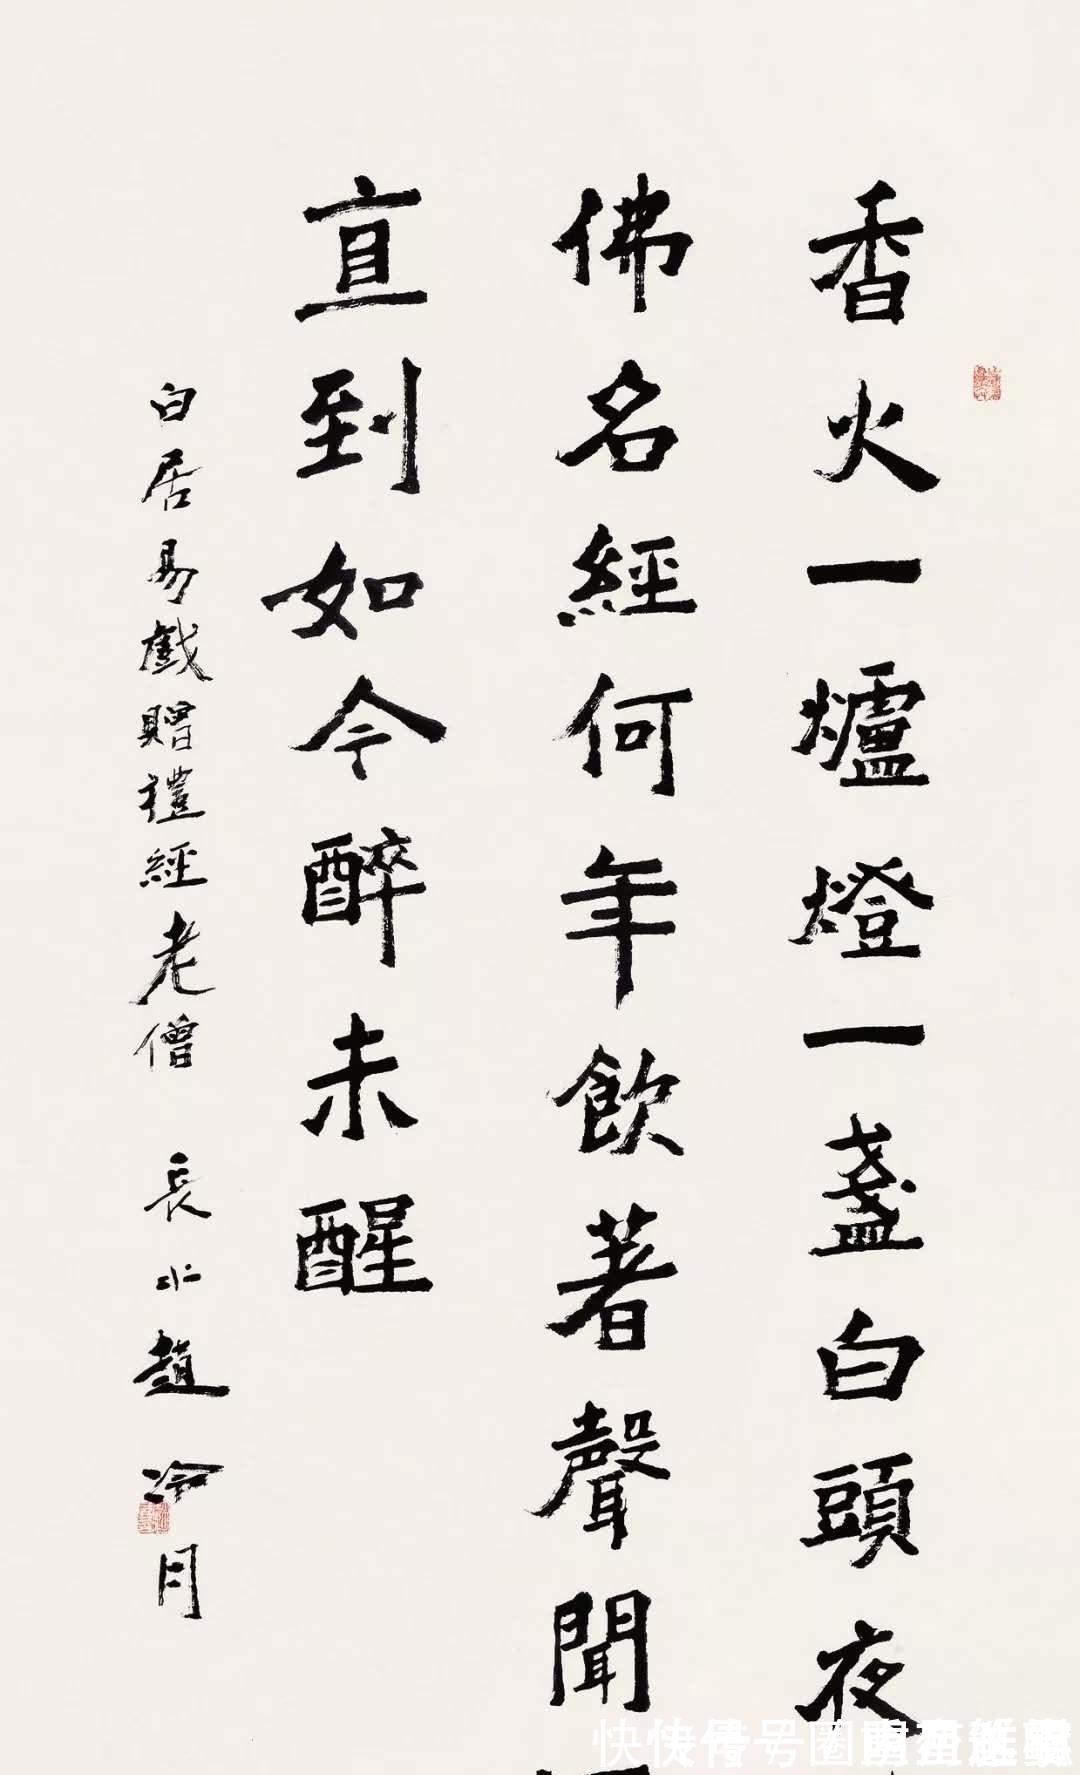 香火一爐燈一盞白頭夜
佛名經何年飲著聲聞
直到如今醉未醒
白居易戲贈禮經老僧 長水趙冷月
快快傳号圈